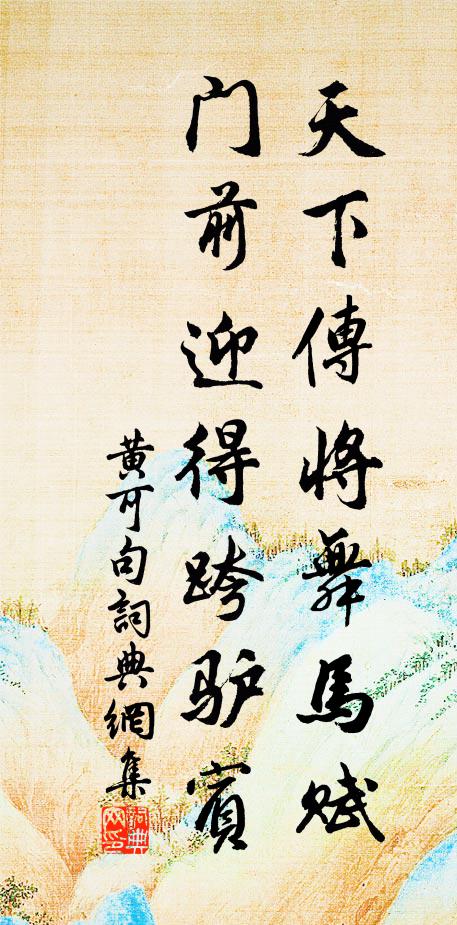 天下傳將舞馬賦
门前迎得跨驴賓
黃可句詞典網集
詞典